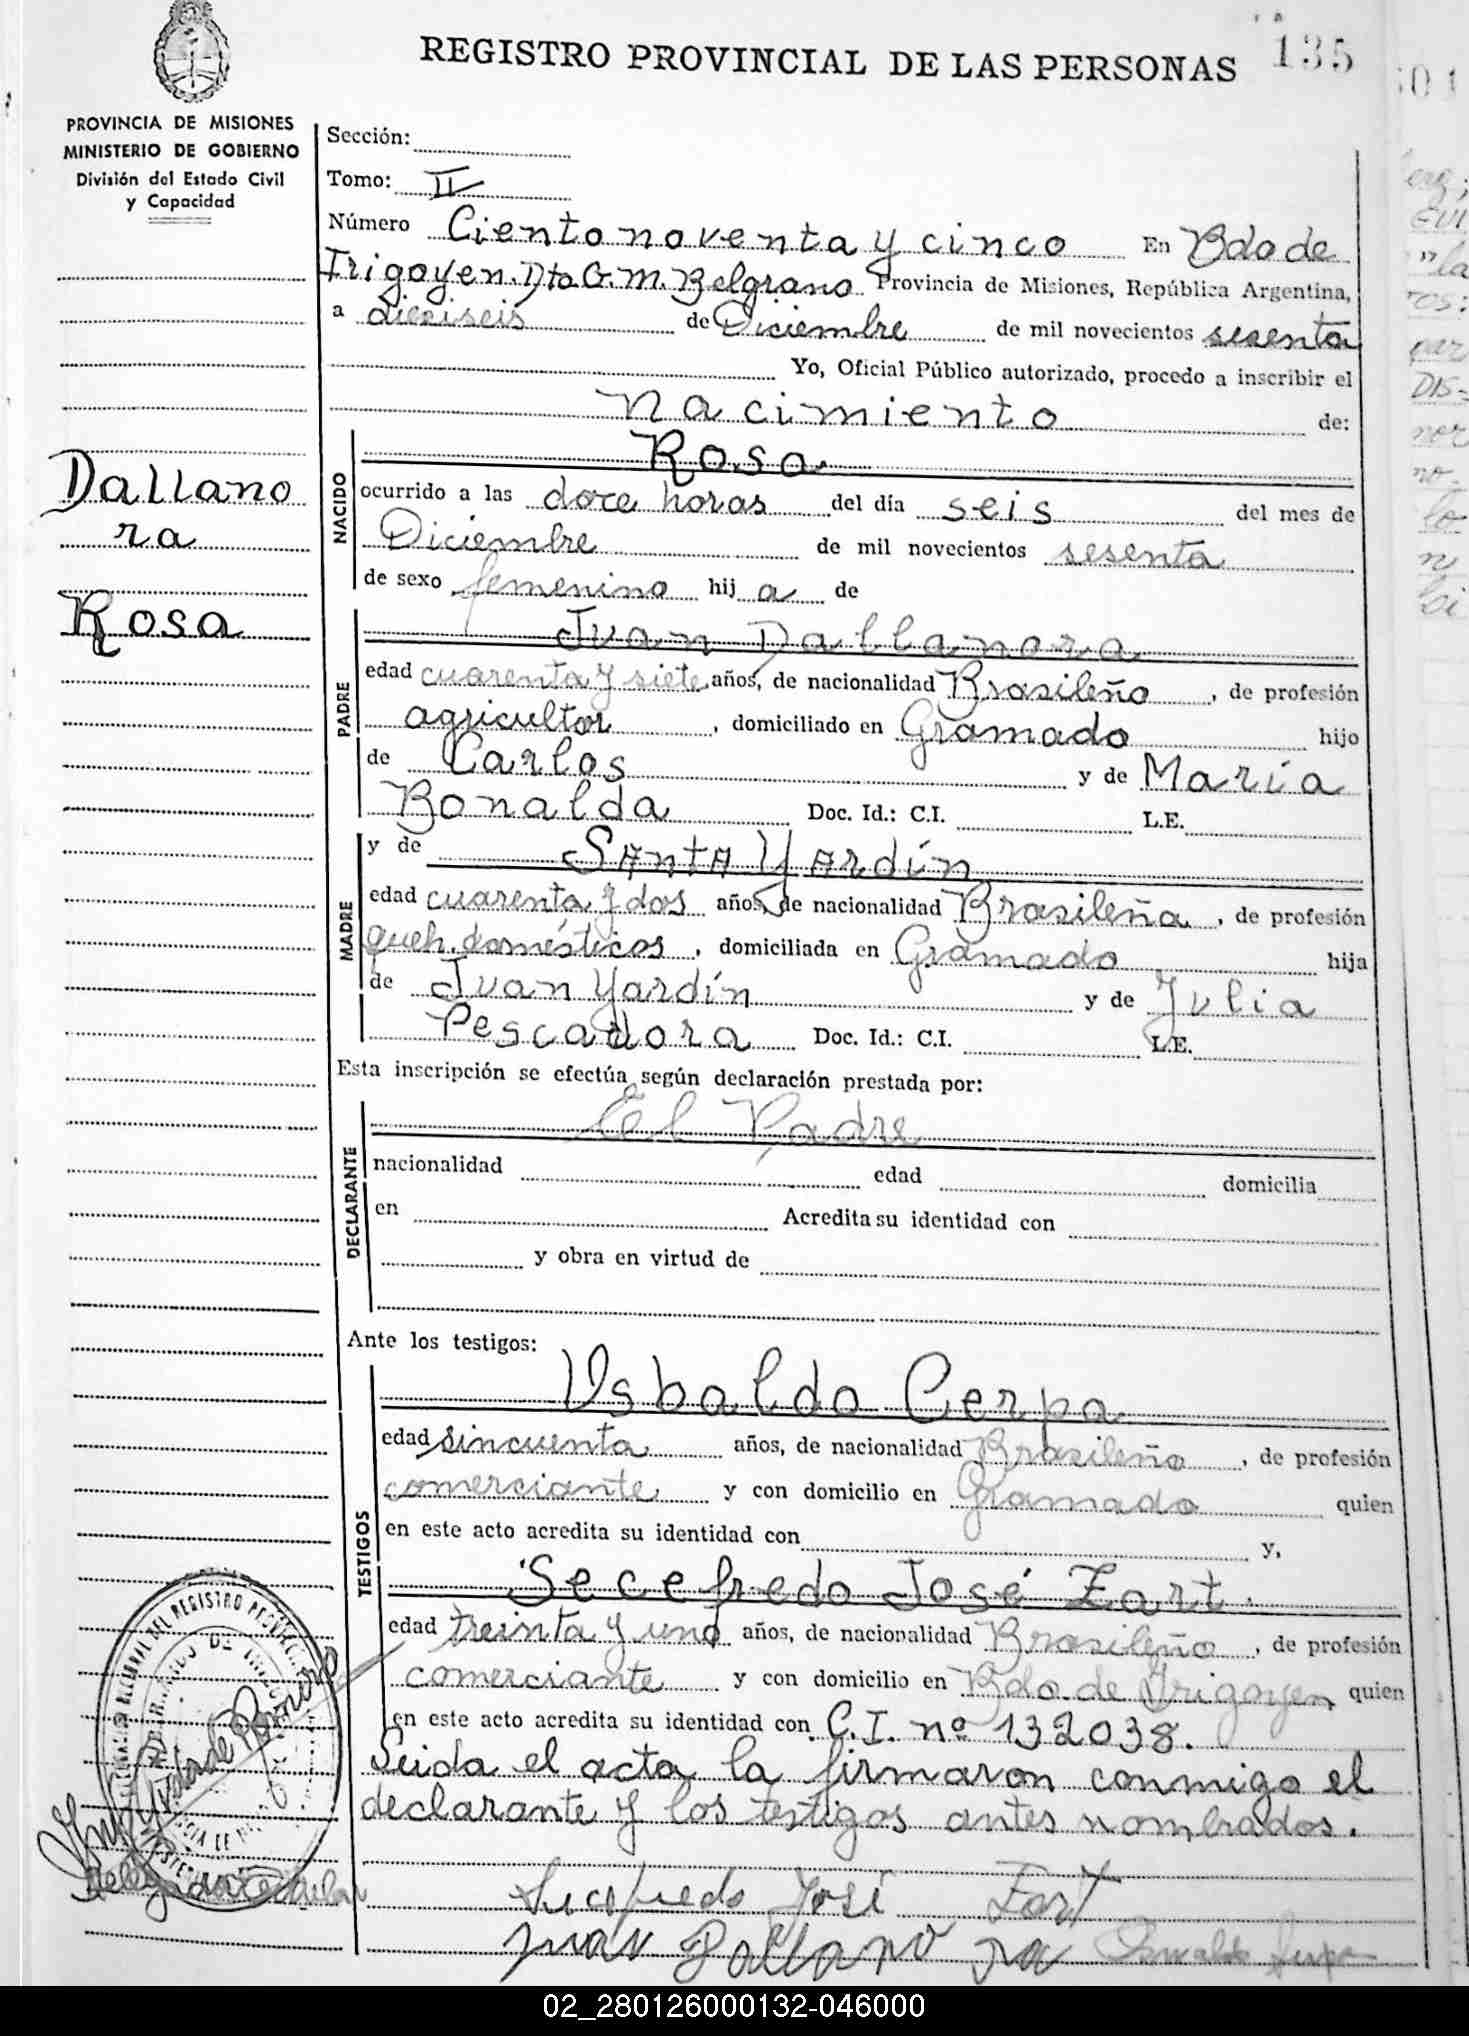 135
REGISTRO PROVINCIAL DE LAS PERSONAS
PROVINCIA DE MISIONES
MINISTERIO DE GOBIERNO
División del Estado Civil
y Capacidad
Dallano
ra
Rosa
Sección:
Tomo: II
Número Ciento noventa y cinco En Bdo de
Irigoyen. Dto G. M. Belgrano Provincia de Misiones, República Argentina,
a dieciseis de Diciembre de mil novecientos sesenta
Yo, Oficial Público autorizado, procedo a inscribir el
nacimiento de:
NACIDO
Rosa
ocurrido a las doce horas del día seis del mes de
Diciembre de mil novecientos sesenta
de sexo femenino hij a de
PADRE
Juan Dallanora
edad cuarenta y siete años, de nacionalidad Brasileño, de profesión
agricultor, domiciliado en Gramado hijo
de Carlos y de María
Bonalda Doc. Id.: C.I. L.E.
MADRE
y de SAntA YArdín
edad cuarenta y dos años, de nacionalidad Brasileña, de profesión
queh. domésticos, domiciliada en Gramado hija
de Juan Yardín y de Julia
Pescadora Doc. Id.: C.I. L.E.
Esta inscripción se efectúa según declaración prestada por:
DECLARANTE
El Padre
nacionalidad edad domicilia
en Acredita su identidad con
y obra en virtud de
Ante los testigos:
TESTIGOS
Usbaldo Cerpa
edad sincuenta años, de nacionalidad Brasileño, de profesión
comerciante y con domicilio en Gramado quien
en este acto acredita su identidad con y,
Secefredo José Zart.
edad treinta y uno años, de nacionalidad Brasileño, de profesión
comerciante y con domicilio en Bdo. de Irigoyen quien
en este acto acredita su identidad con C.I. nº 132038.
Leida el acta la firmaron conmigo el
declarante y los testigos antes nombrados.
Secefredo José Zart
Juan Dallano ra
02_280126000132-046000